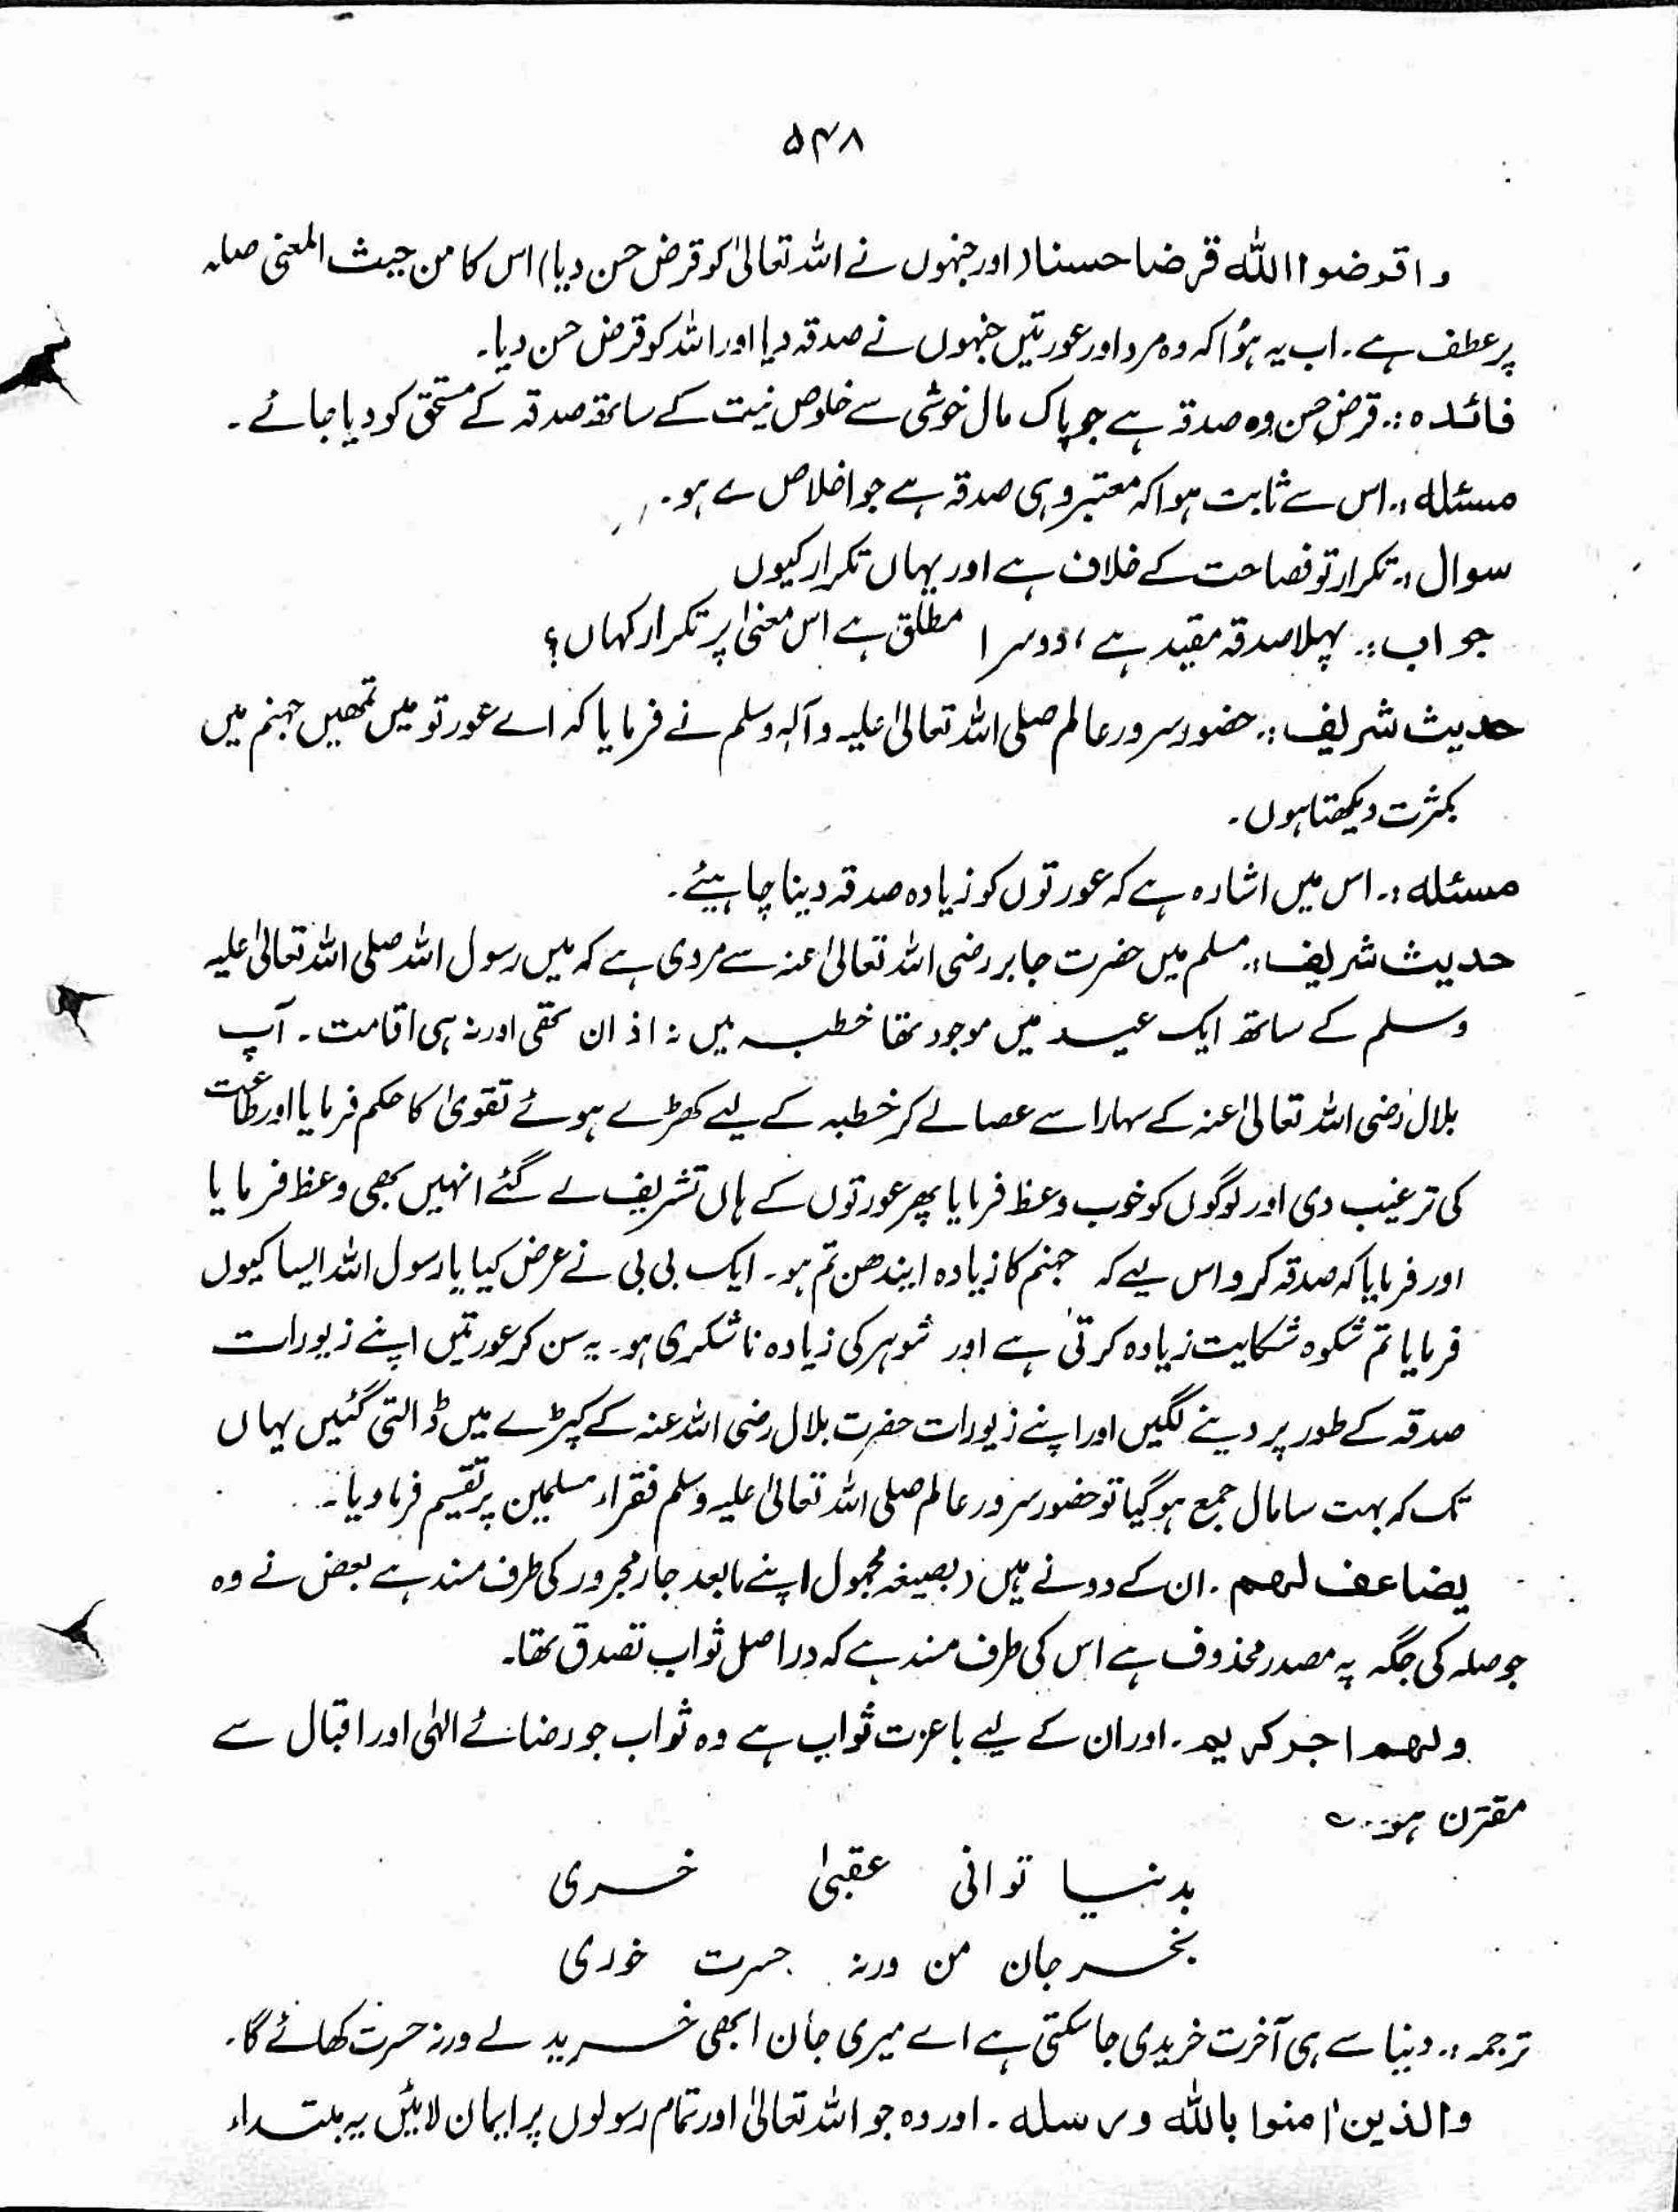 ۵۴۸
واقرضوا اللہ قرضا حسنا (اور جنہوں نے اللہ تعالیٰ کو قرض حسن دیا) اس کا من حیث المعنی صلہ
پر عطف ہے۔ اب یہ ہُوا کہ وہ مرد اور عورتیں جنہوں نے صدقہ دیا اور اللہ کو قرض حسن دیا۔
فائدہ :۔ قرض حسن وہ صدقہ ہے جو پاک مال خوشی سے خلوص نیت کے ساتھ صدقہ کے مستحق کو دیا جائے ۔
مسئلہ :۔ اس سے ثابت ہوا کہ معتبر وہی صدقہ ہے جو اخلاص سے ہو۔
سوال :۔ تکرار تو فصاحت کے خلاف ہے اور یہاں تکرار کیوں
جواب :۔ پہلا صدقہ مقید ہے ، دوسرا مطلق ہے اس معنیٰ پر تکرار کہاں ؟
حدیث شریف :۔ حضور سرور عالم صلی اللہ تعالیٰ علیہ وآلہ وسلم نے فرمایا کہ اے عورتو میں تمھیں جہنم میں
بکثرت دیکھتا ہوں ۔
مسئلہ :۔ اس میں اشارہ ہے کہ عورتوں کو زیادہ صدقہ دینا چاہیئے ۔
حدیث شریف :۔ مسلم میں حضرت جابر رضی اللہ تعالیٰ عنہ سے مروی ہے کہ میں رسول اللہ صلی اللہ تعالیٰ علیہ
وسلم کے ساتھ ایک عید میں موجود تھا خطبہ میں نہ اذان تھی اور نہ ہی اقامت ۔ آپ
بلال رضی اللہ تعالیٰ عنہ کے سہارا سے عصا لے کر خطبہ کے لیے کھڑے ہوئے تقویٰ کا حکم فرمایا اور طاعت
کی ترغیب دی اور لوگوں کو خوب وعظ فرمایا پھر عورتوں کے ہاں تشریف لے گئے انہیں بھی وعظ فرمایا
اور فرمایا کہ صدقہ کرو اس لیے کہ جہنم کا زیادہ ایندھن تم ہو۔ ایک بی بی نے عرض کیا یا رسول اللہ ایسا کیوں
فرمایا تم شکوہ شکایت زیادہ کرتی ہے اور شوہر کی زیادہ ناشکری ہو۔ یہ سن کر عورتیں اپنے زیورات
صدقہ کے طور پر دینے لگیں اور اپنے زیورات حضرت بلال رضی اللہ عنہ کے کپڑے میں ڈالتی گئیں یہاں
تک کہ بہت سا مال جمع ہو گیا تو حضور سرور عالم صلی اللہ تعالیٰ علیہ وسلم فقراء مسلمین پر تقسیم فرما دیا ۔
یضاعف لہم ۔ ان کے دونے ہیں (بصیغہ مجہول اپنے مابعد جار مجرور کی طرف مسند ہے بعض نے وہ
جو صلہ کی جگہ پہ مصدر محذوف ہے اس کی طرف مسند ہے کہ دراصل ثواب تصدق تھا۔
ولہم اجر کریم ۔ اور ان کے لیے باعزت ثواب ہے وہ ثواب جو رضائے الہٰی اور اقبال سے
مقترن ہو۔
بدنیا توانی عقبیٰ خری
بخر جان من ورنہ حسرت خوری
ترجمہ :۔ دنیا سے ہی آخرت خریدی جاسکتی ہے اے میری جان ابھی خرید لے ورنہ حسرت کھائے گا۔
والذین اٰمنوا باللہ ورسلہ ۔ اور وہ جو اللہ تعالیٰ اور تمام رسولوں پر ایمان لائیں یہ مبتداء